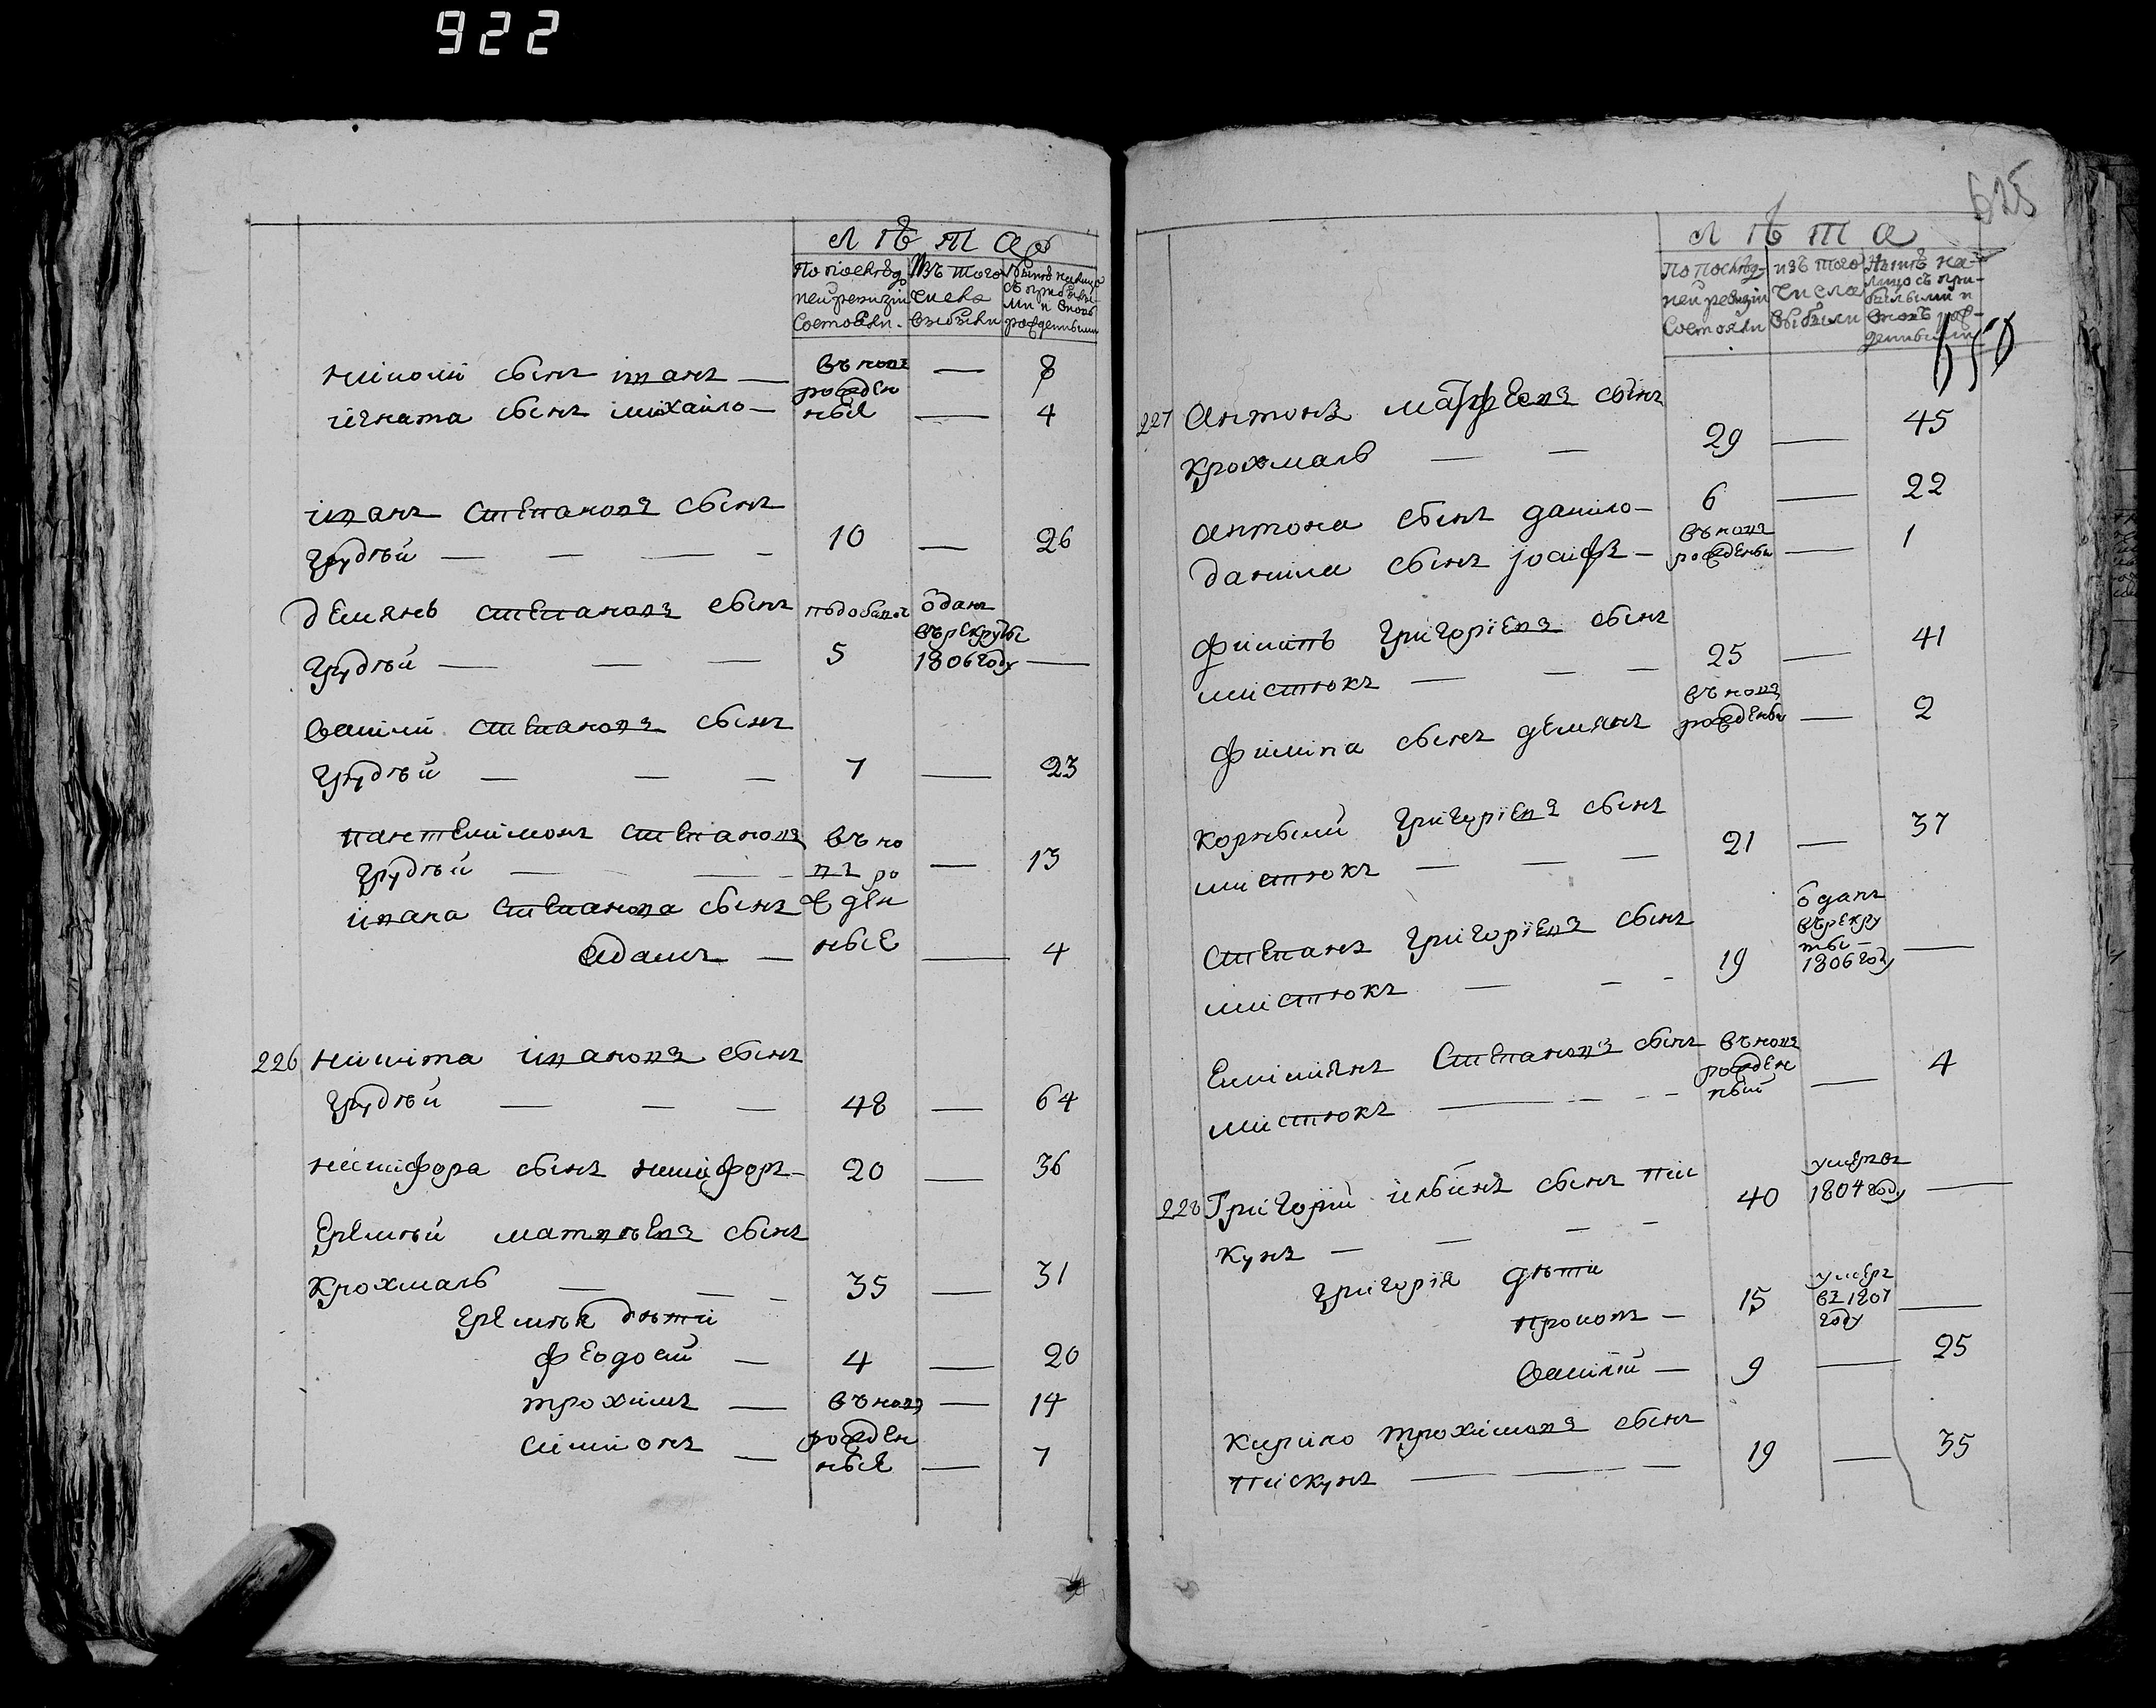 922
Лѣта
По послѣд
ней ревизіи
состояли.
Изъ того
числа
выбыли
Нынѣ налицо
съ прибылы
ми и вновь
рожденными
Николая сынъ Иванъ — въновъ — 8
Игната сынъ Михайло — рожден
ныя — 4
Иванъ Степановъ сынъ
Грудѣй — — — — 10 — 26
Демянъ Степановъ сынъ
Грудѣй — — — 5
одан
въ рекруты
1806 году —
Василий Степановъ сынъ
Грудѣй — — — 7 — 23
Пантелимонъ Степановъ въ но
Грудѣй — — въ ро — 13
Ивана Степанова сынъ жден
Адамъ — ные — 4
226 Никита Ивановъ сынъ
Грудѣй — — — 48 — 64
Никифора сынъ Никифоръ — 20 — 36
Еремѣй Матвѣевъ сынъ
Крохмаль — — — 35 — 31
Еремѣя дѣти
Феодосий — 4 — 20
Трохимъ — въновъ — 14
Симионъ — рожден
ные — 7
625
Лѣта
По послѣд-
ней ревизіи
состояли
изъ того
числа
выбыли
Нынѣ на-
лицо съ при-
былыми и
вновь рож-
денными
227 Антонъ Матфеевъ сынъ
Крохмаль — — 29 — 45
Антона сынъ Данило — 6 — 22
Данила сынъ Іосифъ — въновъ
рожденны — 1
Филипъ Григоріевъ сынъ
Мистюкъ — — — 25 — 41
Филипа сынъ Демянъ въновъ
рожденны — 2
Корнылий Григоріевъ сынъ
Мистюкъ — — — 21 — 37
Степанъ Григоріевъ сынъ
Мистюкъ — — — 19
одан
въ рекру
ты —
1806 году —
Емилиянъ Степановъ сынъ въновъ
Мистюкъ — — — рожден
ный — 4
228 Григорий Ильинъ сынъ Пис
кунъ — — — — 40
умеръ въ
1804 году —
Григорія дѣти
Прокопъ — 15
умеръ
въ 1807
году —
Василий — 9 — 25
Кирило Трохимовъ сынъ
Пискунъ — — — 19 — 35